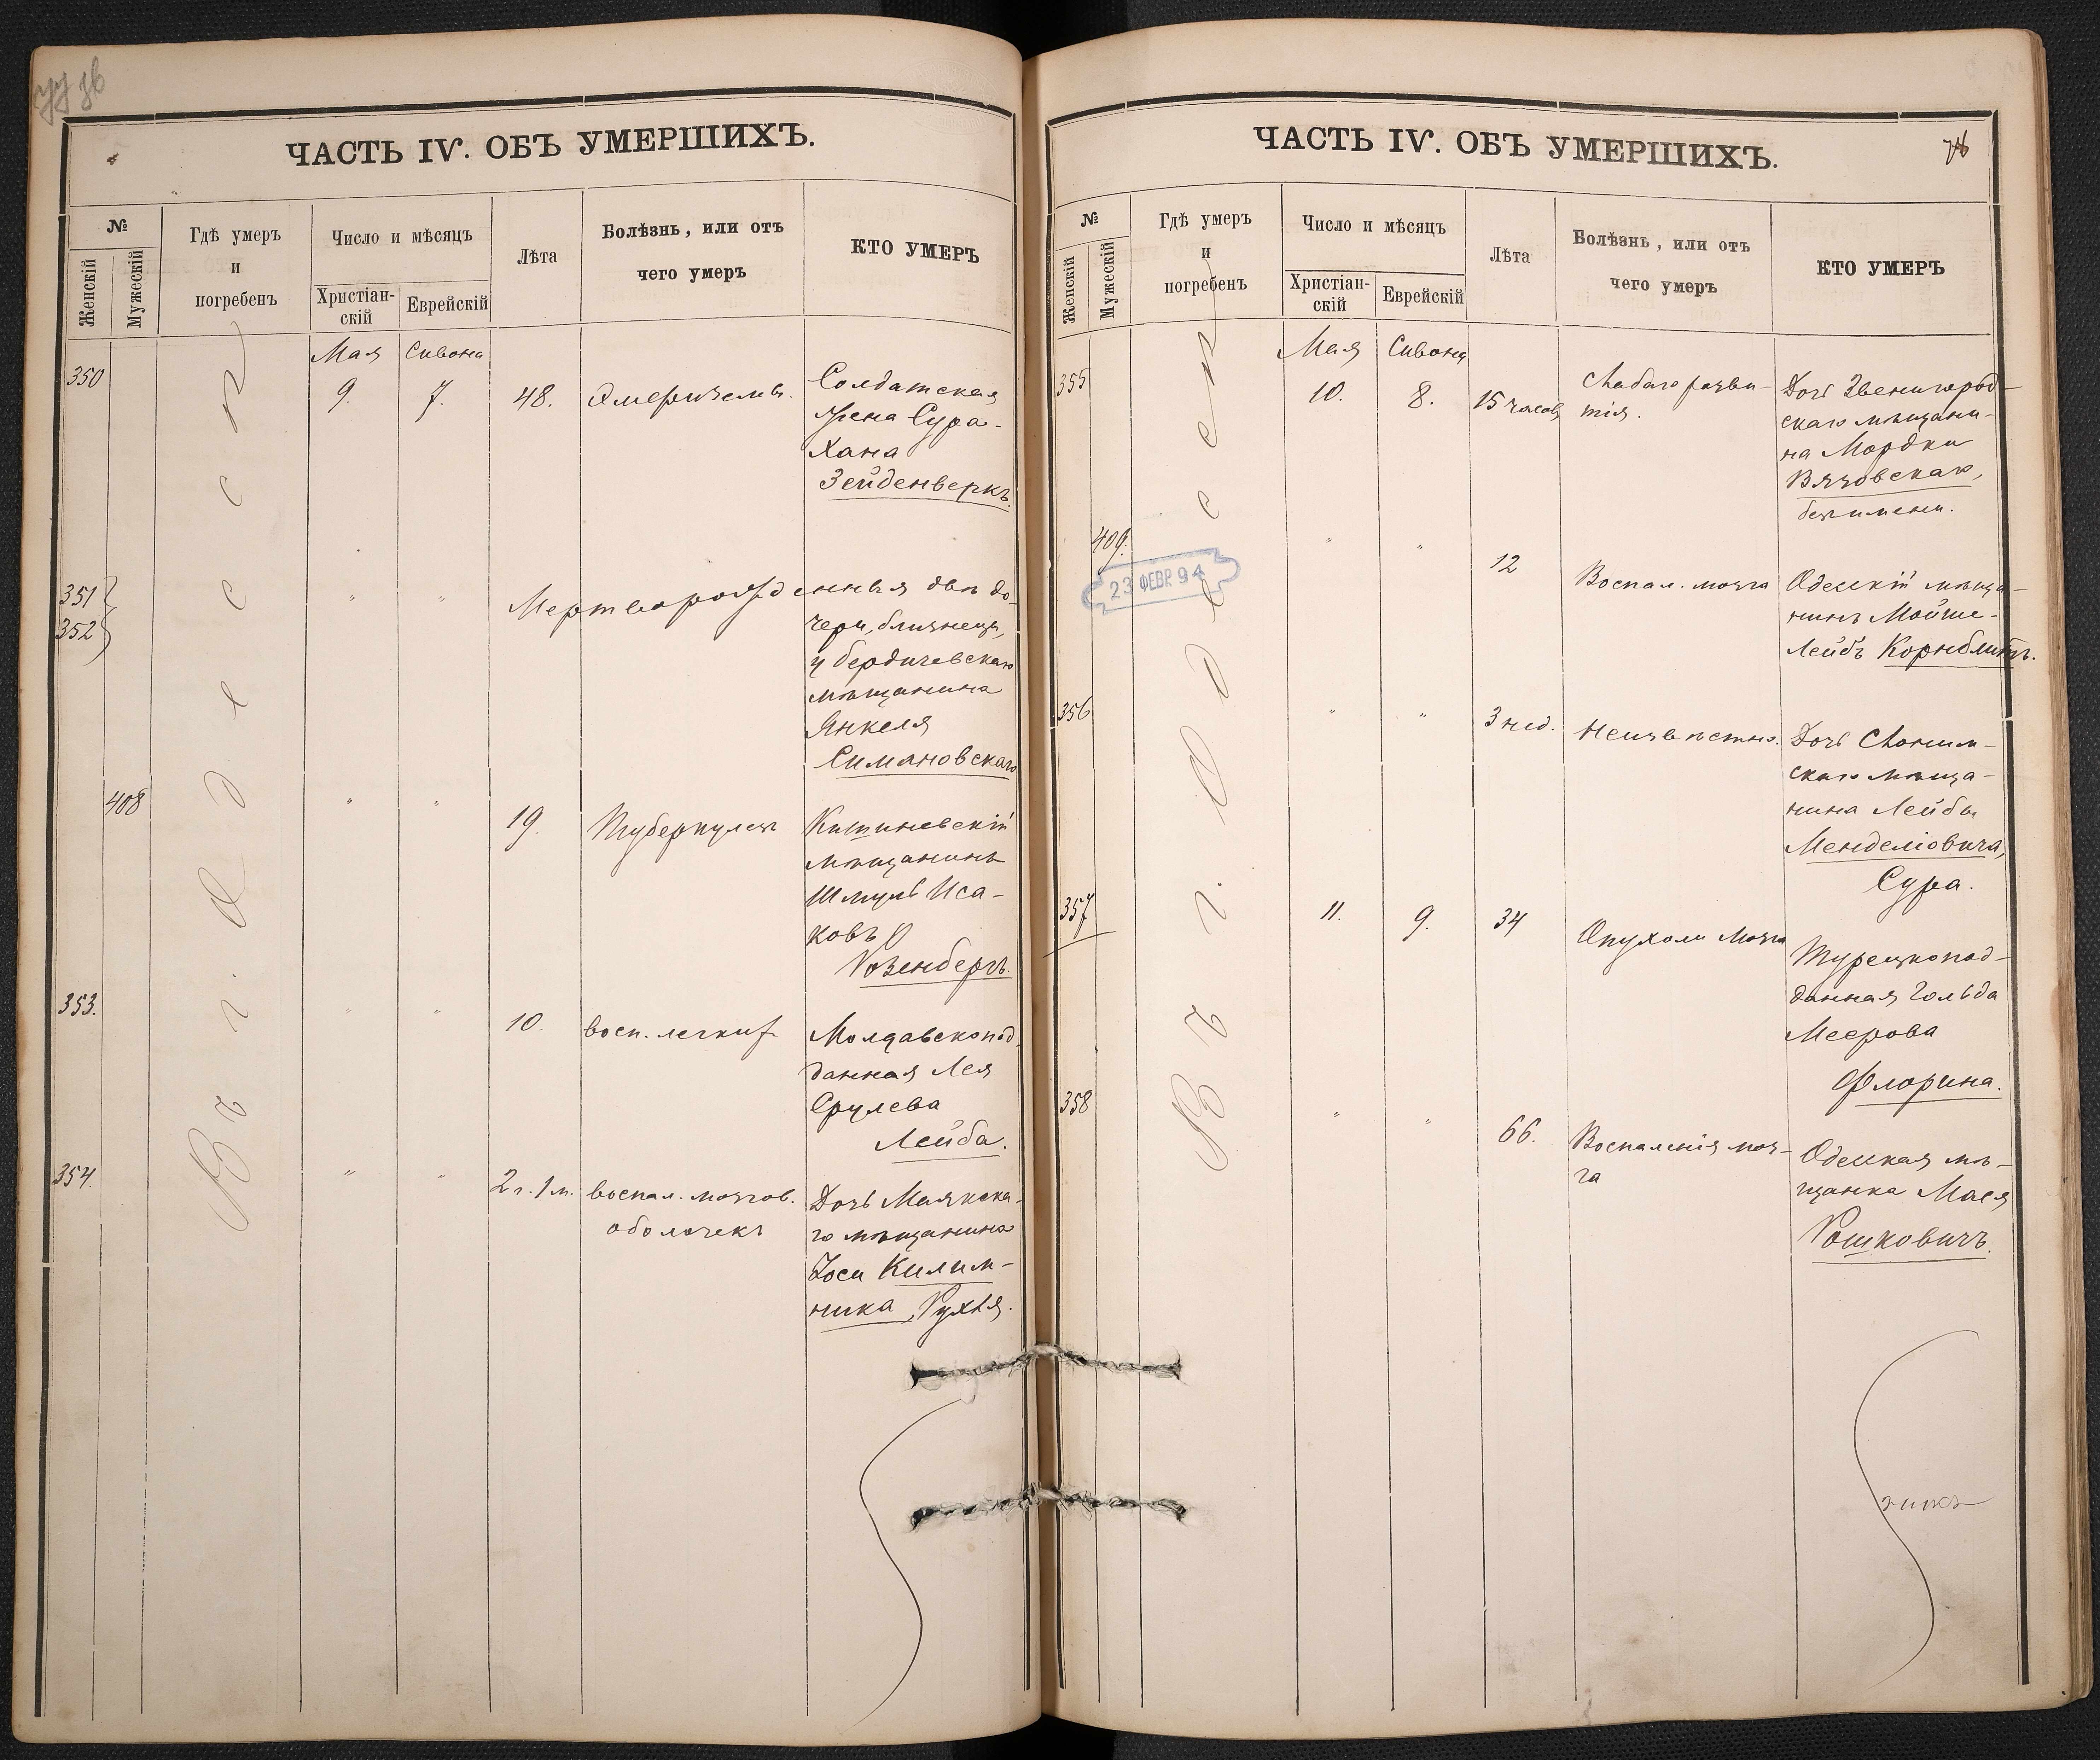 ЧАСТЬ IV. ОБЪ УМЕРШИХЪ.
№
Женскій
Мужескій
Гдѣ умеръ
и
погребенъ
Число и мѣсяцъ
Христіан-
скій
Еврейскій
Лѣта
Болѣзнь, или отъ
чего умеръ
КТО УМЕРЪ
Въ г. Одессѣ
Мая
Сивона
350
9.
7.
48.
Солдатская
жена Сура-
Хана
Зейденверкъ.
351
352
"
"
Мерторожденныя двѣ до-
чери, близнецы,
у бердичевскаго
мѣщанина
Янкеля
Симановскаго
408
"
"
19.
Туберкулезъ
Кишиневскій
мѣщанинъ
Шмуль Иса-
ковъ
Розенбергъ.
353.
"
"
10.
восп. легкихъ
Молдавскопод-
данная Лея
Срулева
Лейба.
354.
"
"
2 г. 1 м.
воспал. мозгов.
оболочекъ
Дочь Маякска-
го мѣщанина
Іоси Килим-
ника, Рухля.
ЧАСТЬ IV. ОБЪ УМЕРШИХЪ.
№
Женскій
Мужескій
Гдѣ умеръ
и
погребенъ
Число и мѣсяцъ
Христіан-
скій
Еврейскій
Лѣта
Болѣзнь, или отъ
чего умеръ
КТО УМЕРЪ
Въ г. Одессѣ
Мая
Сивона
355
10.
8.
15 часовъ
Слабаго разви-
тія.
Дочь Звенигород-
скаго мѣщани-
на Мордки
Вязовскаго,
безъ имени.
409.
23 ФЕВР 94
"
"
12
Воспал. мозга
Одесскій мѣща-
нинъ Мойше-
Лейбъ Корнблитъ.
356
"
"
3 нед.
Неизвѣстно.
Дочь Слоним-
скаго мѣща-
нина Лейбы
Менделіовича,
Сура.
357
11.
9.
34
Опухоли мозга
Турецкопод-
данная Гольда
Меерова
Флорина.
358
"
"
66.
Воспаленія моз-
га
Одесская мѣ-
щанка Мася
Рошковичъ.